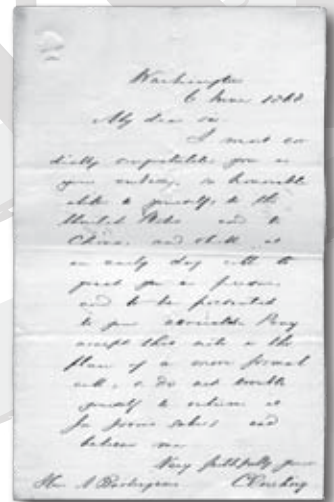 Washington
6 June 1868
My dear sir
I most cor
dially congratulate you on
your embassy, so honorable
alike to yourself, to the
United States and to
China, and shall at
an early day call to
greet you in person
and to be presented
to your associates. Pray
accept this note in the
place of a more formal
call, & do not trouble
yourself to return it
and
believe me
Very faithfully yours
Hon. A Burlingame